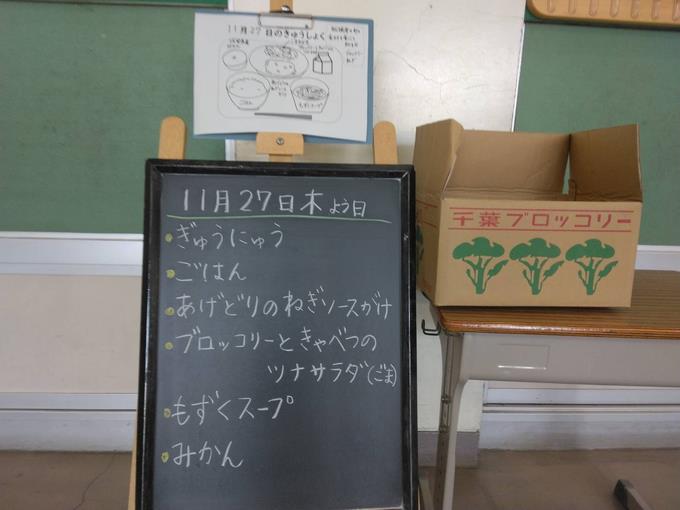 11月27日のきゅうしょく
ごはん
もずくスープ
11月27日木よう日
ぎゅうにゅう
ごはん
あげどりのねぎソースがけ
ブロッコリーときゃべつの
ツナサラダ(ごま)
もずくスープ
みかん
千葉ブロッコリー